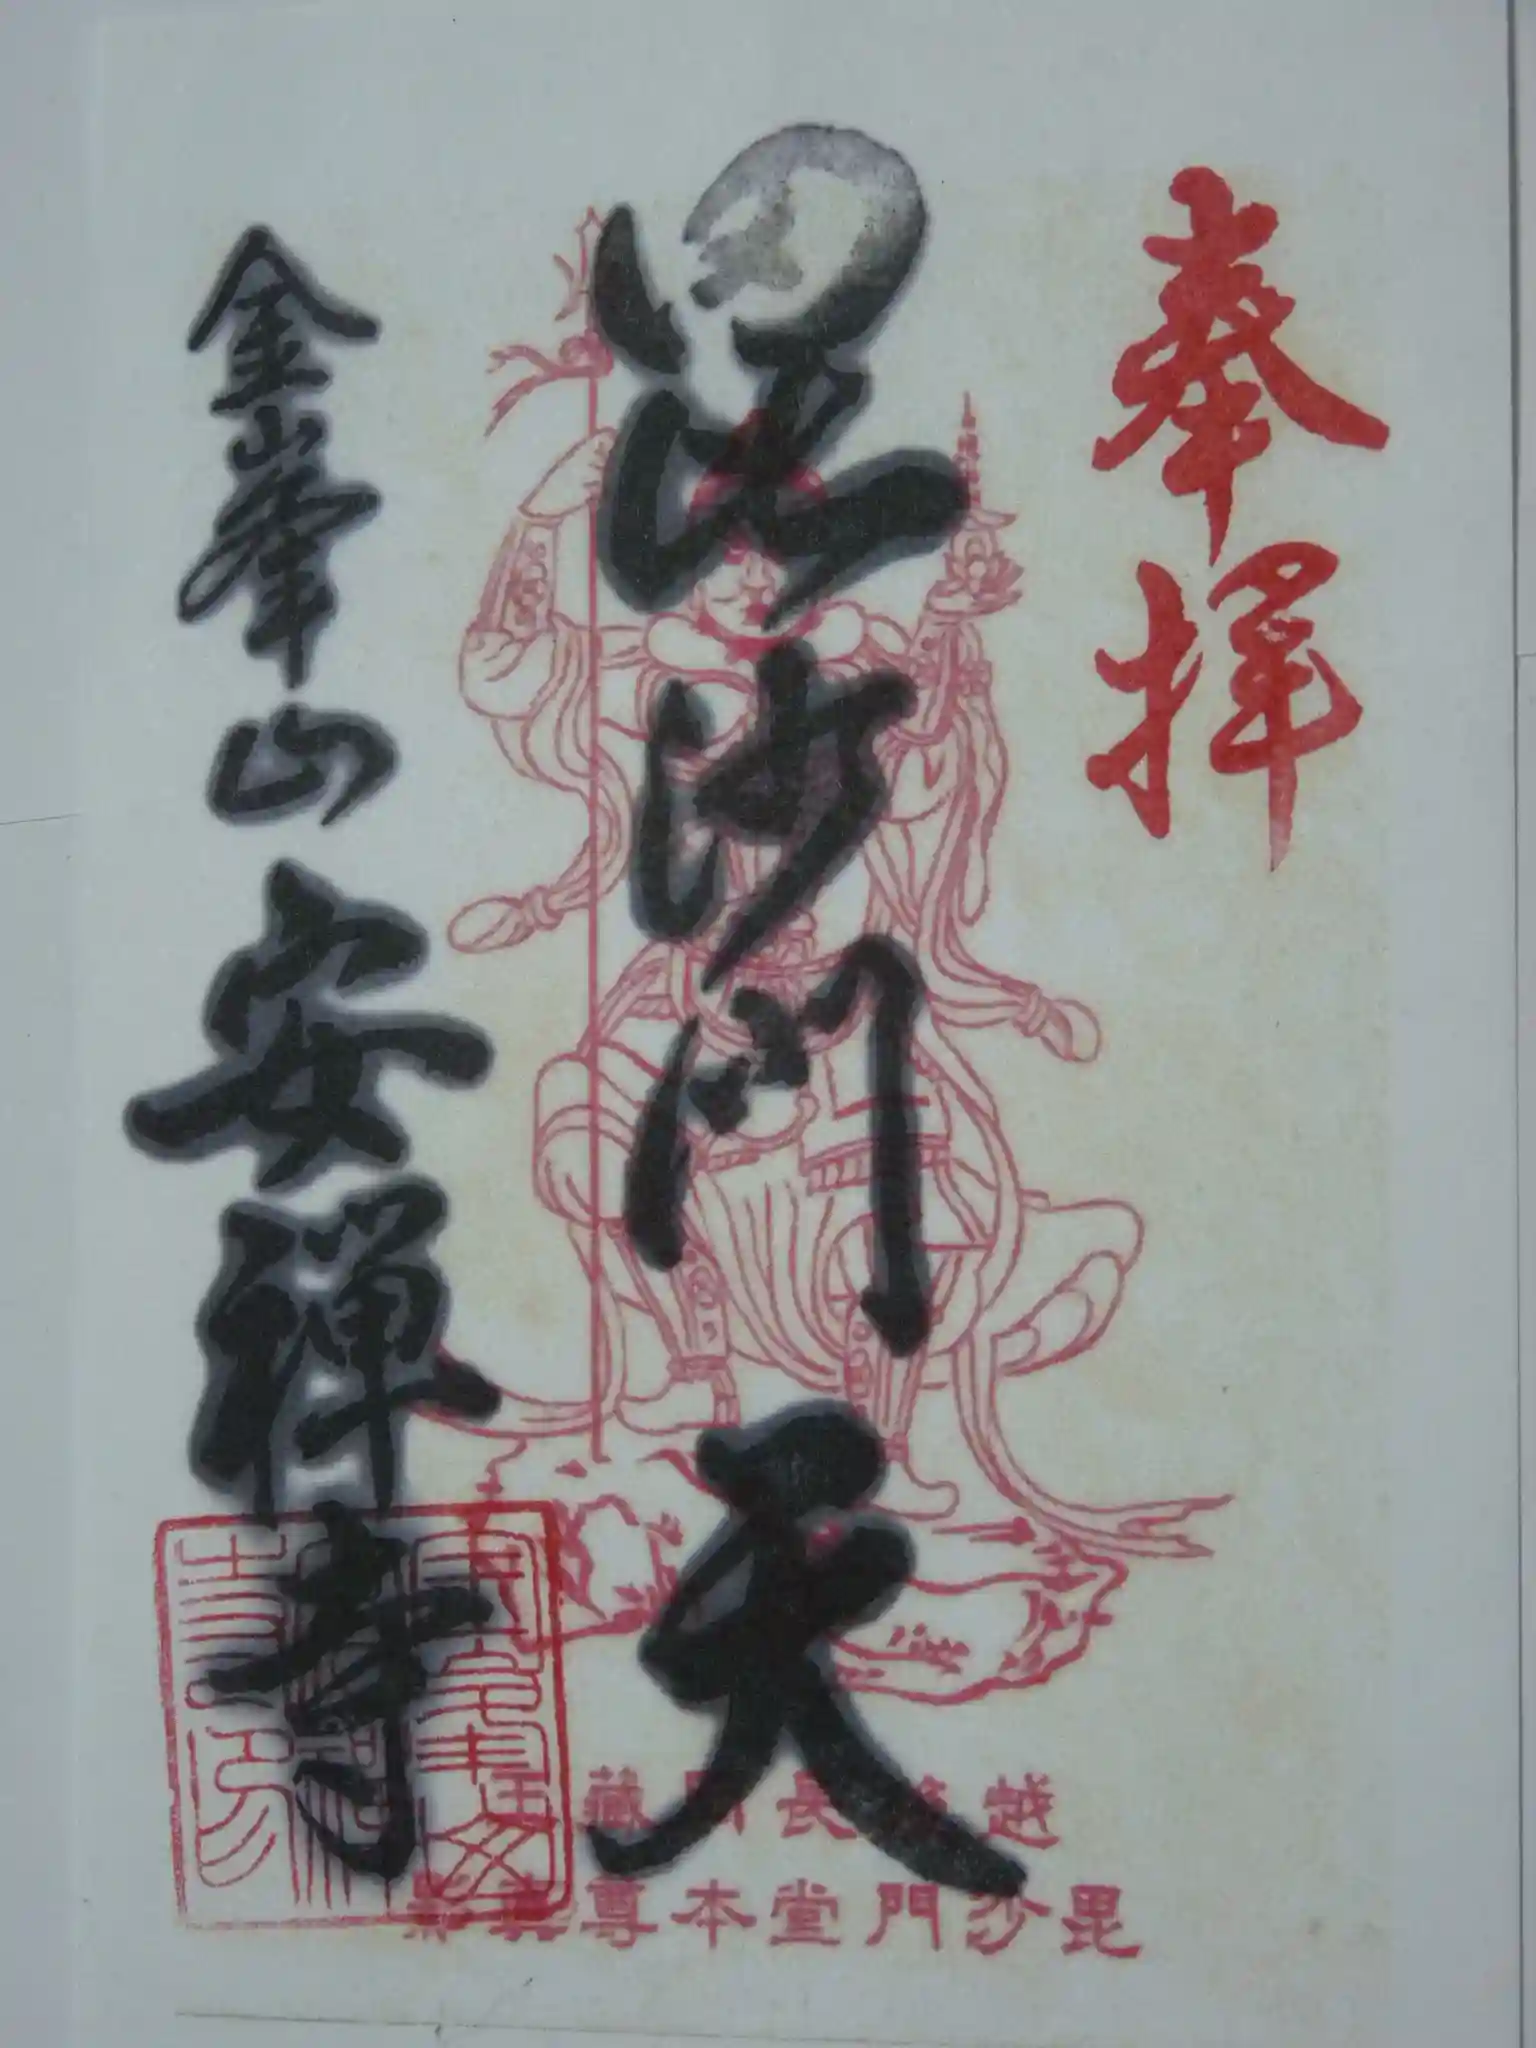 奉拝
毘沙門天
金峯山 安禅寺
越後長岡藏
毘沙門堂本尊